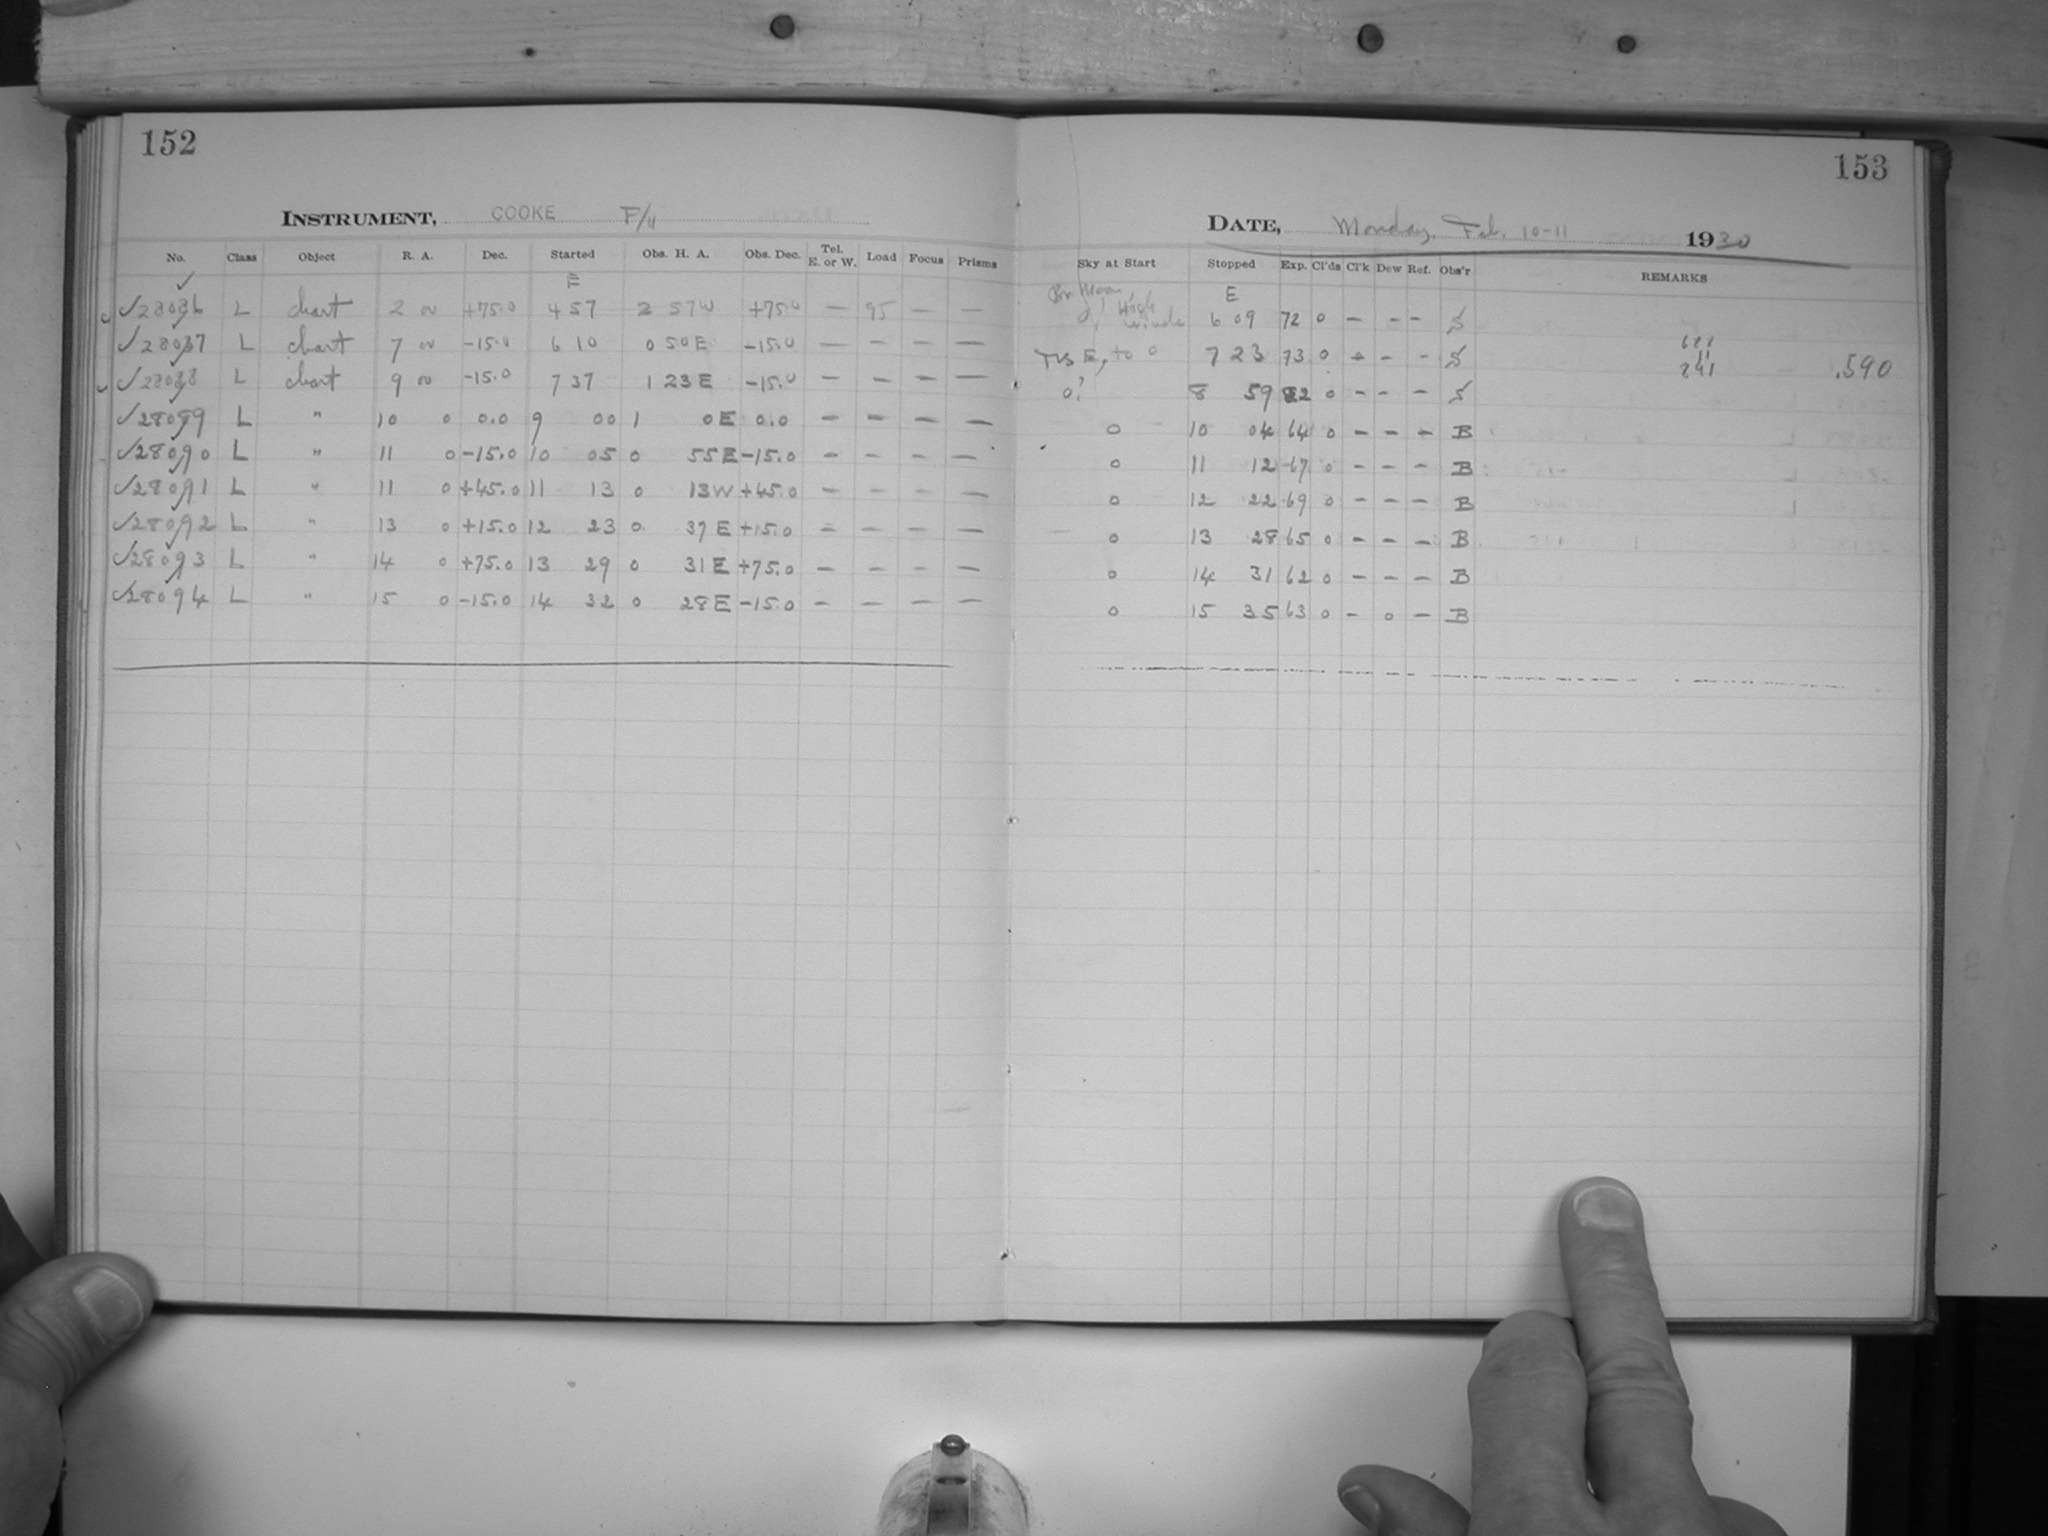 152
INSTRUMENT, COOKE F/4
No. Class Object R. A. Dec. Started Obs. H. A. Obs. Dec. Tel. E. or W. Load Focus Prisms
✓ E
✓28086 L chart 2 00 +75.0 4 57 2 57 W +75.0 — 95 — —
✓28087 L chart 7 00 -15.0 6 10 0 50 E -15.0 — — — —
✓28088 L chart 9 00 -15.0 7 37 1 23 E -15.0 — — — —
✓28089 L " 10 0 0.0 9 00 1 0 E 0.0 — — — —
✓28090 L " 11 0 -15.0 10 05 0 55 E -15.0 — — — —
✓28091 L " 11 0 +45.0 11 13 0 13 W +45.0 — — — —
✓28092 L " 13 0 +15.0 12 23 0 37 E +15.0 — — — —
✓28093 L " 14 0 +75.0 13 29 0 31 E +75.0 — — — —
✓28094 L " 15 0 -15.0 14 32 0 28 E -15.0 — — — —
153
DATE, Monday, Feb. 10-11 1930
Sky at Start Stopped Exp. Cl'ds Cl'k Dew Ref. Obs'r REMARKS
Br Moon, E
High winds 6 09 72 0 — — — S
E, to 0 7 23 73 0 — — S
.590
0? 8 59 82 0 — — — S
0 10 04 64 0 — — — B
0 11 12 67 0 — — — B
0 12 22 69 0 — — — B
0 13 28 65 0 — — — B
0 14 31 62 0 — — — B
0 15 35 63 0 — 0 — B